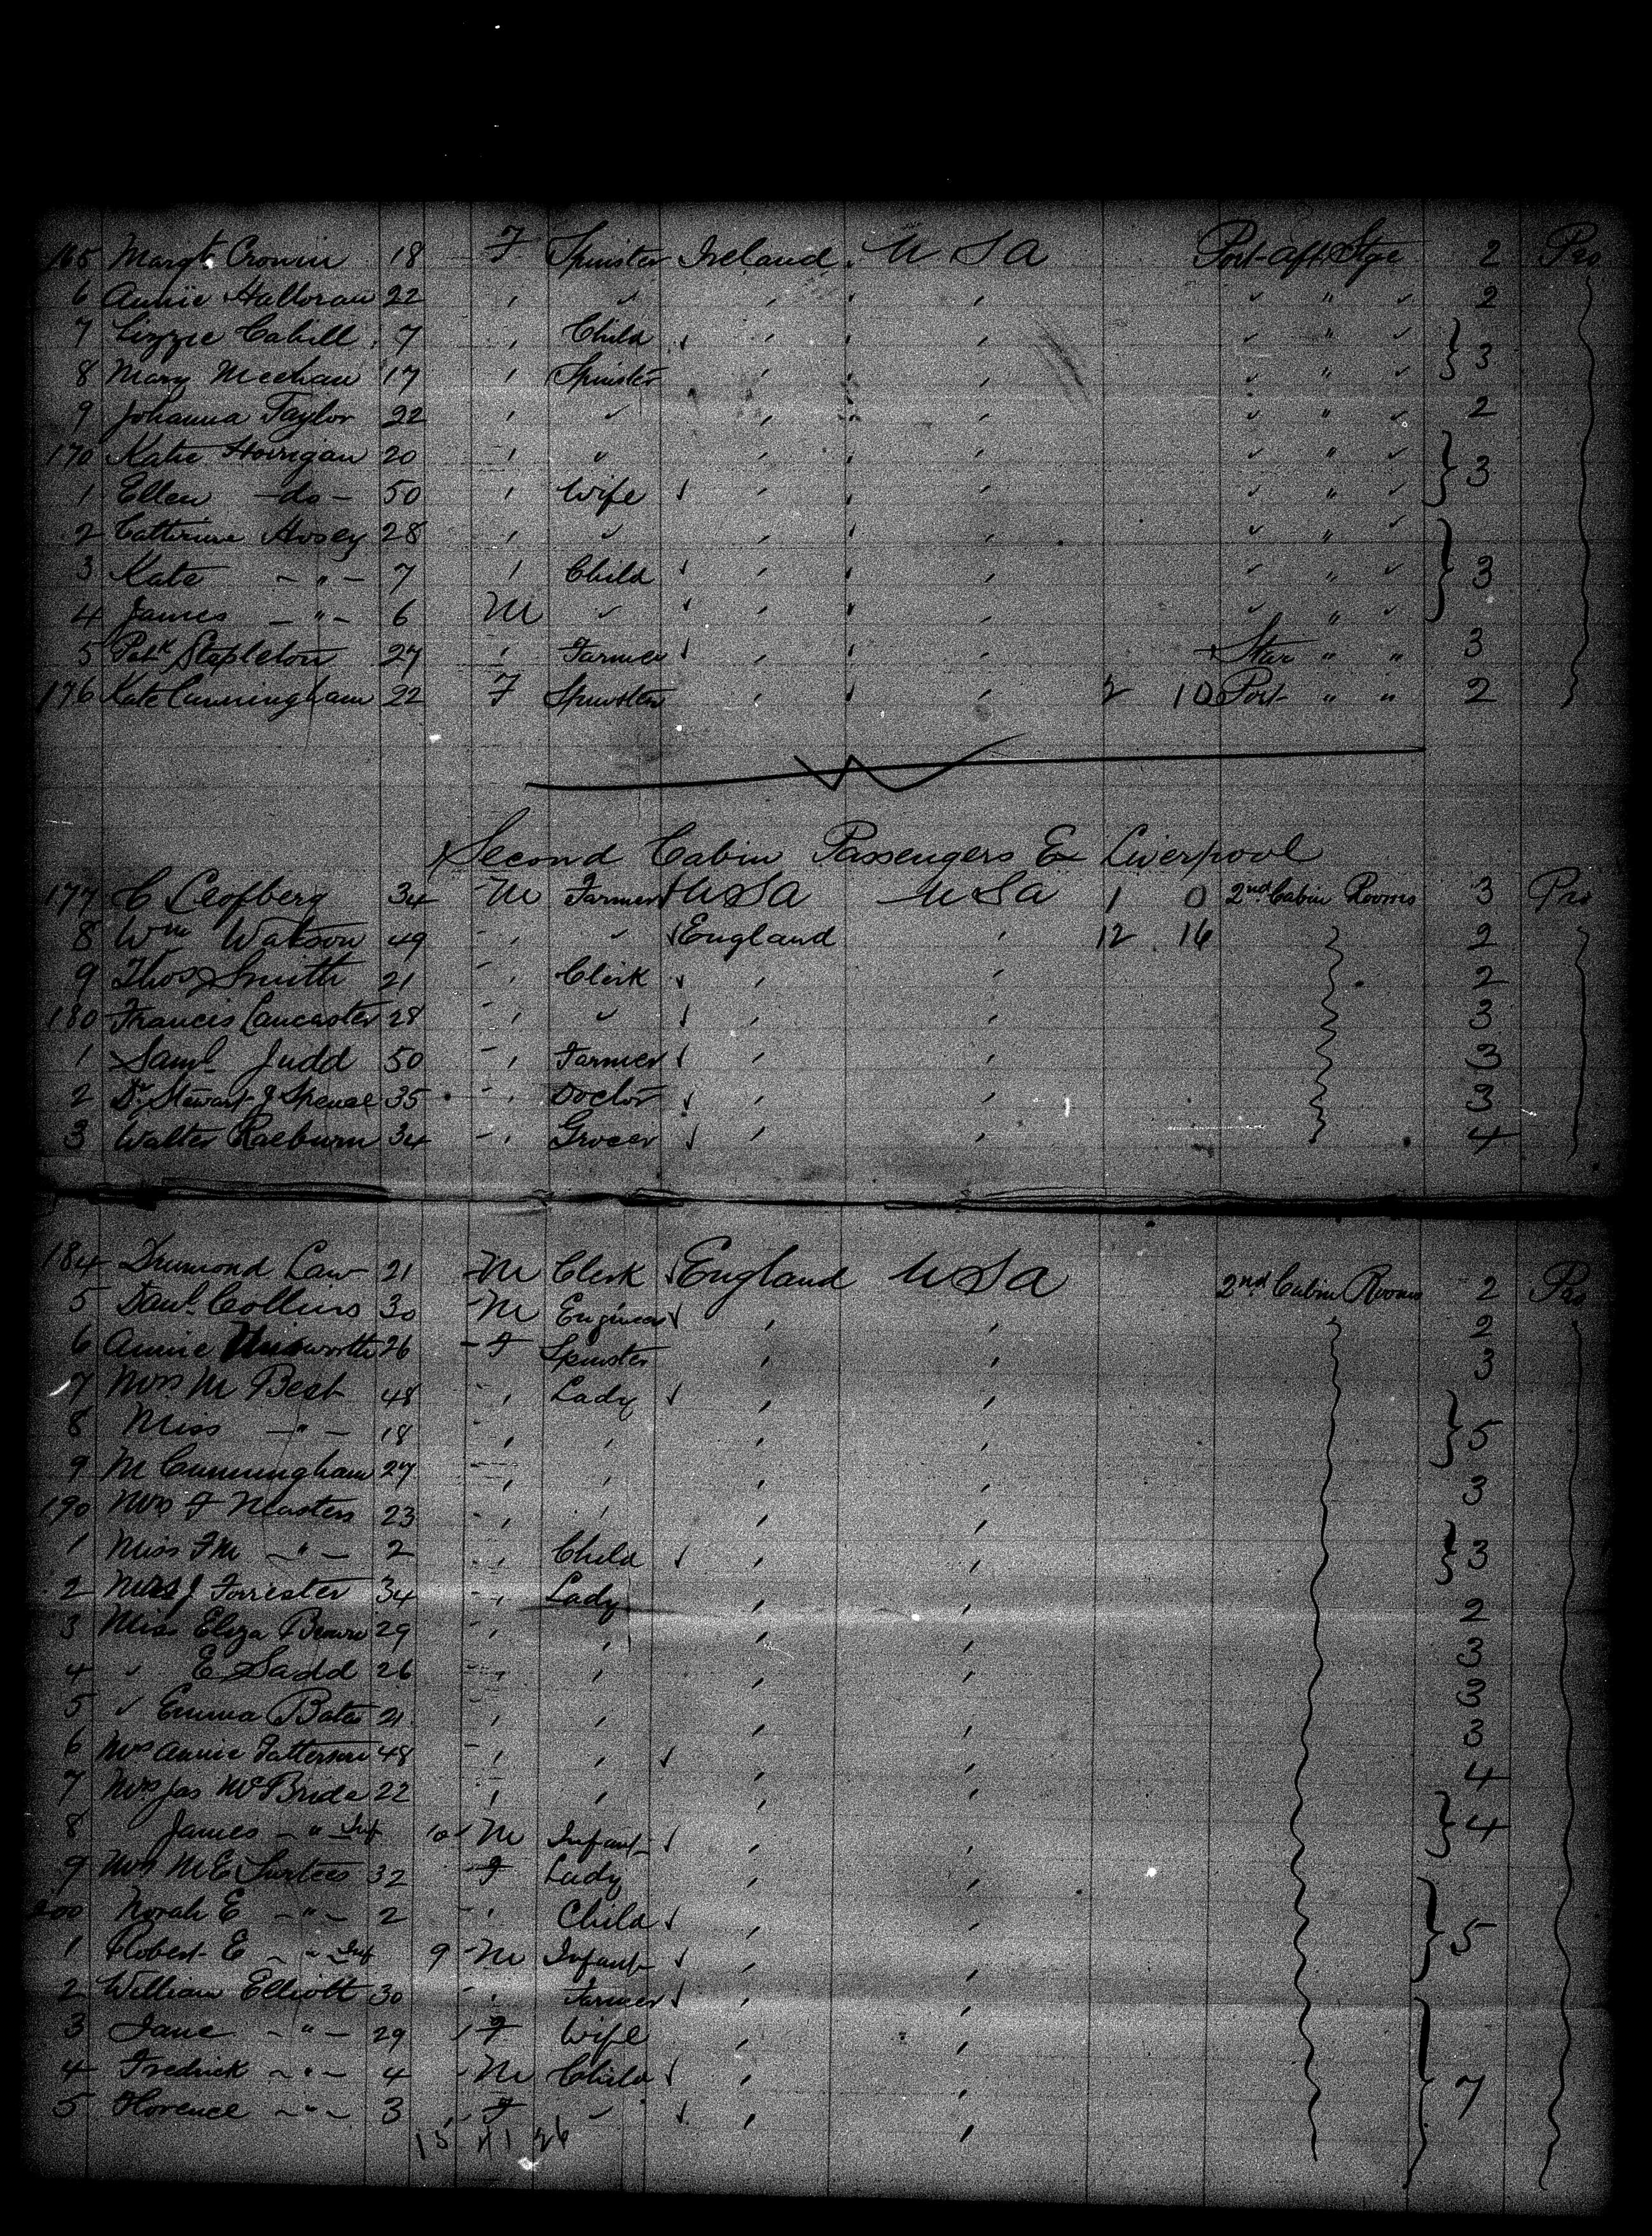 165 Margt Cronin 18 F Spinster Ireland U S A Port aft Stge 2 Pro
6 Annie Halloran 22 " " " " " " " 2
7 Lizzie Cahill 7 " Child " " " " " } 3
8 Mary Meehan 17 " Spinster " " " " "
9 Johanna Taylor 22 " " " " " " " 2
170 Katie Horrigan 20 " " " " " " " } 3
1 Ellen -do- 50 " Wife " " " " "
2 Catherine Hosey 28 " " " " " " " } 3
3 Kate - " - 7 " Child " " " " "
4 James - " - 6 M " " " " " "
5 Patk Stapleton 27 " Farmer " " Star " " 3
176 Kate Cunningham 22 F Spinster " " 2 10 Port " " 2
Second Cabin Passengers Ex Liverpool
177 C Leofberg 34 M Farmer U S A U S A 1 0 2nd Cabin Rooms 3 Pro
8 Wm Watson 49 " " England " 12 16 2
9 Thos Smith 21 " Clerk " " 2
180 Francis Lancaster 28 " " " " 3
1 Saml Judd 50 " Farmer " " 3
2 Dr Stewart J Spence 35 " Doctor " " 3
3 Walter Raeburn 34 " Grocer " " 4
184 Drumond Law 21 M Clerk England U S A 2nd Cabin Rooms 2 Pro
5 Danl Collins 30 M Engineer " " 2
6 Annie 26 F Spinster " " 3
7 Mrs M Best 48 " Lady " " } 5
8 Miss - " - 18 " " " "
9 M Cunningham 27 " " " " 3
190 Mrs F Masters 23 " " " " } 3
1 Miss F M - " - 2 " Child " "
2 Mrs J Forrester 34 " Lady " " 2
3 Miss Eliza Brown 29 " " " " 3
4 " E Sadd 26 " " " " 3
5 " Emma Bates 21 " " " " 3
6 Mrs Annie Patterson 48 " " " " 4
7 Mrs Jas McBride 22 " " " " } 4
8 James - " Inf 10 M Infant " "
9 Mrs M E Surtees 32 F Lady " " } 5
200 Norah E - " - 2 " Child " "
1 Robert E - " Inf 9 M Infant " "
2 William Elliott 30 " Farmer " " } 7
3 Jane - " - 29 F Wife " "
4 Fredrick - " - 4 M Child " "
5 Florence - " - 3 F " " "